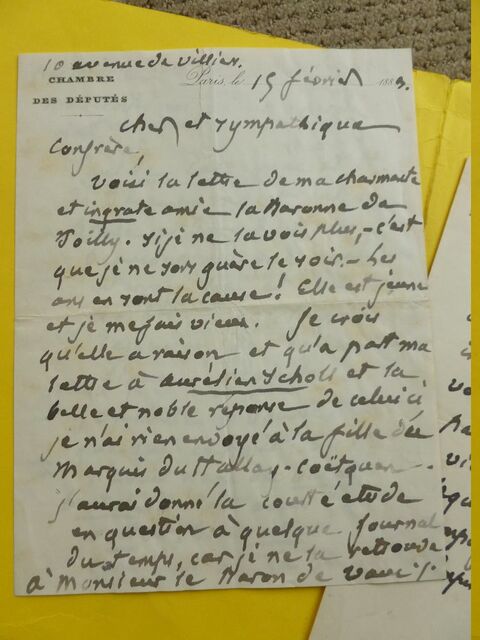 10 avenue de Villiers
CHAMBRE
DES DÉPUTÉS
Paris, le 15 février 188
cher et sympathique
Confrère,
Voici la lettre de ma charmante
et ingrate amie la Baronne de
Poilly. Si je ne la vois plus, - c'est
que je ne sors guère le soir. - Les
ans en sont la cause! Elle est jeune
et je me fais vieux. Je crois
qu'elle a raison et qu'a part ma
lettre à Aurélien Scholl et la
belle et noble réponse de celui ci
je n'ai rien envoyé à la fille du
Marquis du Hallay-Coëtquen.
J'aurai donné la courte étude
en question à quelque journal
du temps, car je ne la retrouve
à Monsieur le Baron de Vaux